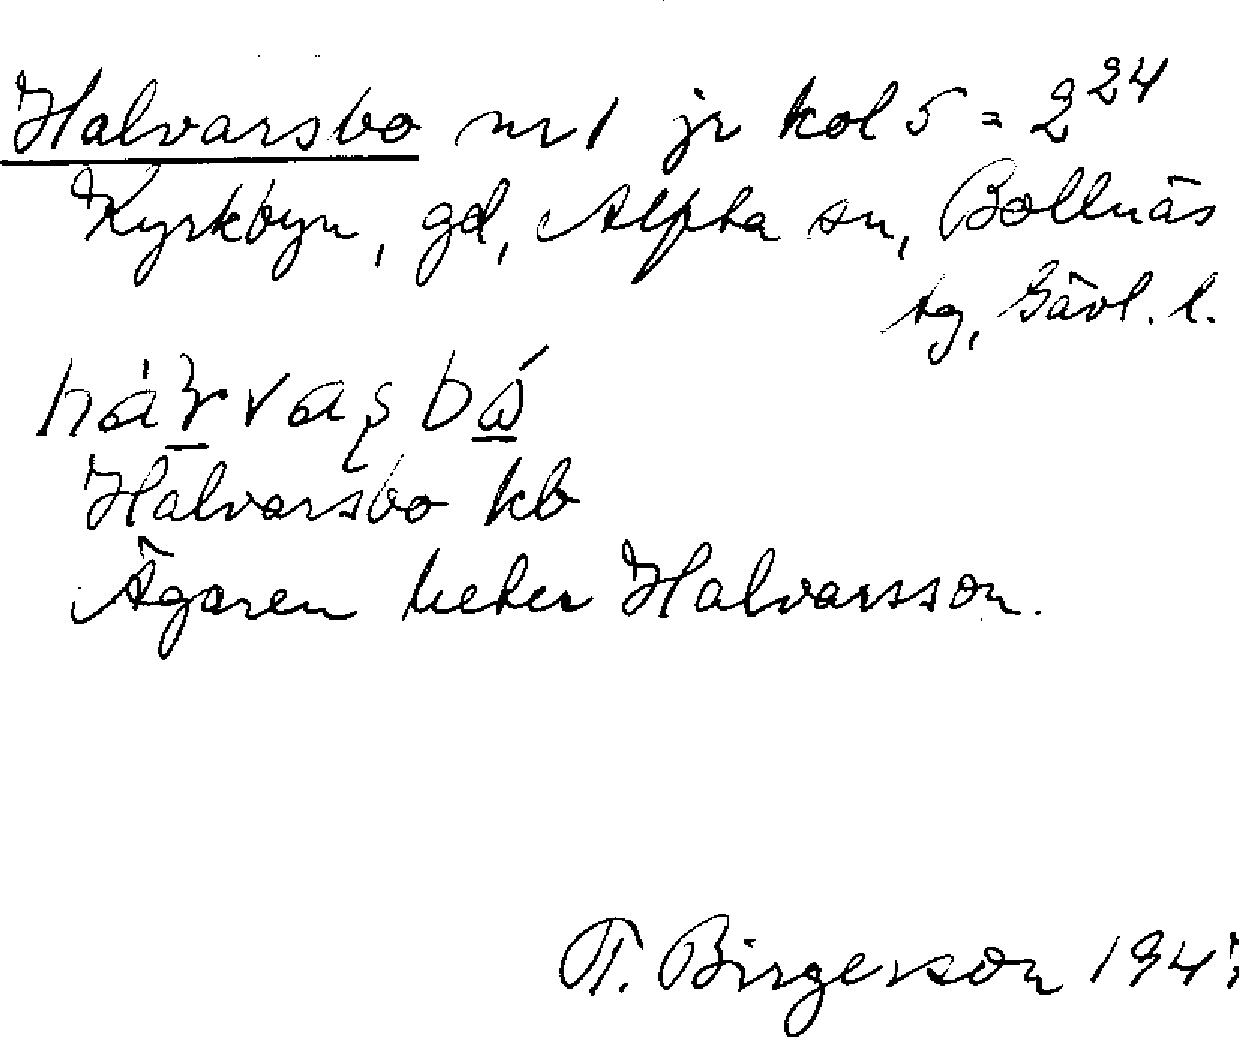 Halvarsbo nr 1 jr kol 5 = 2²⁴
Kyrkbyn, gd, Alfta sn, Bollnäs
tg, Gävl. l.
Halvarsbo kb
Ägaren heter Halvarsson.
T. Birgerson 194